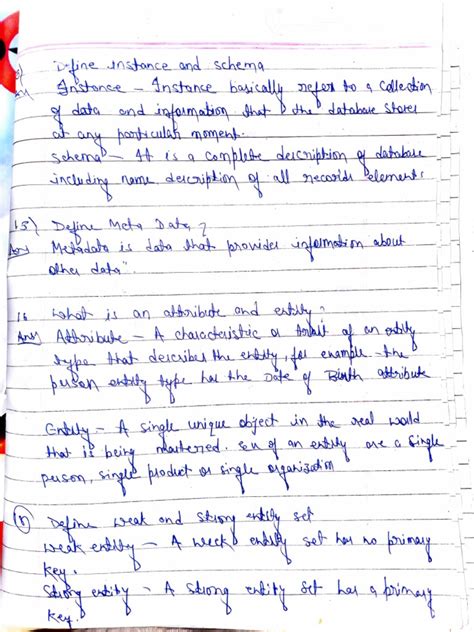 Define instance and schema
Ans) Instance - Instance basically refers to a collection
of data and information that the database stores
at any particular moment.
Schema - It is a complete description of database
including name, description of all records elements
15) Define Meta Data?
Ans Metadata is data that provides information about
other data".
16 What is an attribute and entity?
Ans) Attribute - A characteristic or trait of an entity
type that describes the entity, for example - the
person entity type has the Date of Birth attribute
Entity - A single unique object in the real world
that is being mastered. Ex of an entity are a single
person, single product or single organization
Define weak and strong entity set
Weak entity - A week entity set has no primary
Key.
Strong entity - A strong entity set has a primary
Key.